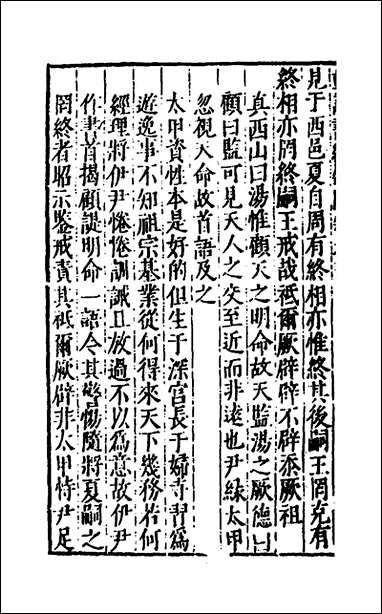 見于西邑夏自周有終相亦惟終其後嗣王罔克有
終相亦罔終嗣王戒哉祗爾厥辟辟不辟忝厥祖
真西山曰湯惟顧天之明命故天監湯之厥德曰
顧曰監可見天人之交至近而非遠也尹緣太甲
忽視天命故首語及之
太甲資性本是好的但生于深宮長于婦寺習爲
遊逸事不知祖宗基業從何得來天下幾務若何
經理將伊尹惓惓訓誡且放過不以爲意故伊尹
作書首揭顧諟明命一語令其警惕隨將夏嗣之
罔終者昭示鑒戒責其祗爾厥辟非太甲恃尹足